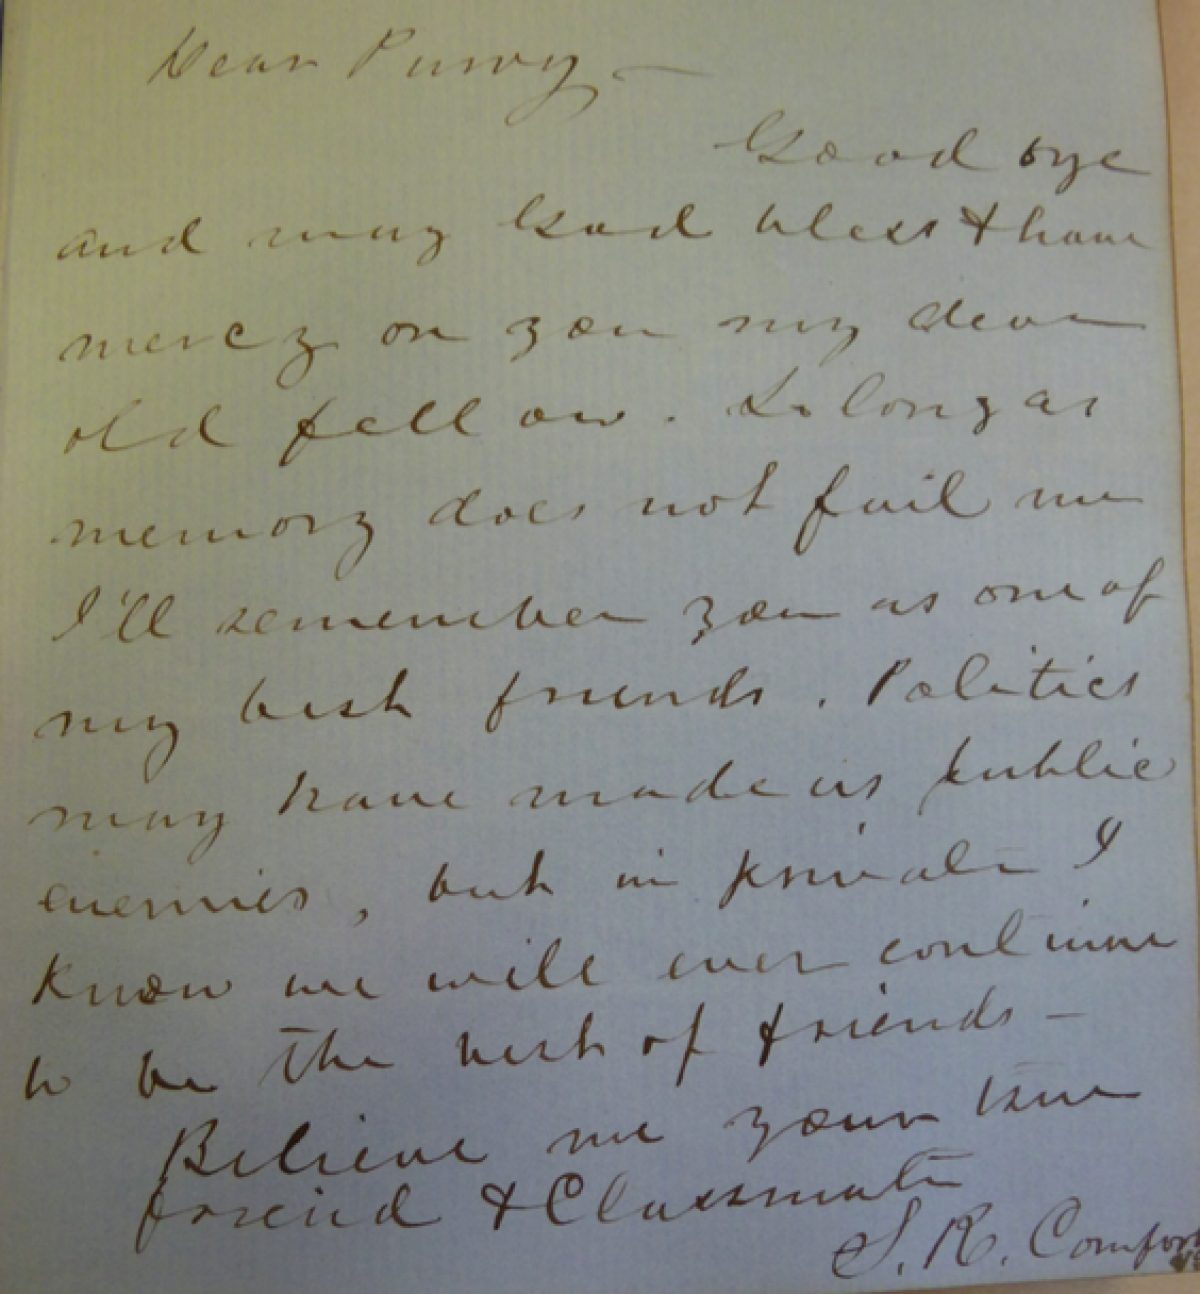 Dear Purvy —
Good bye
and may God bless & have
mercy on you my dear
old fellow. So long as
memory does not fail me
I'll remember you as one of
my best friends. Politics
may have made us public
enemies, but in private I
know we will ever continue
to be the best of friends —
Believe me your true
friend & Classmate
S. R. Comfort